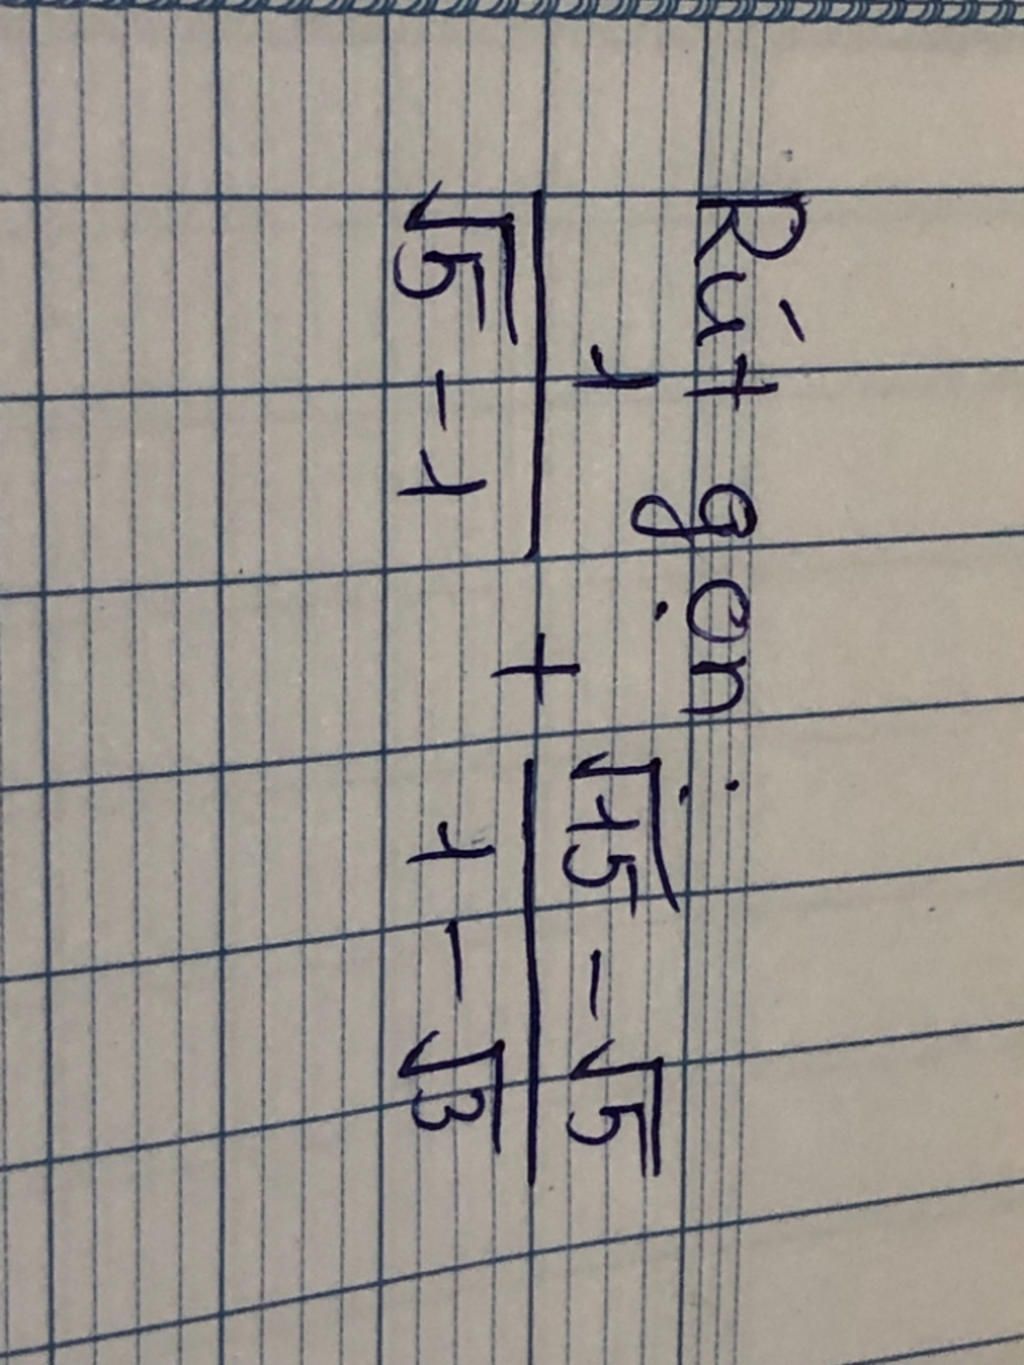 Rút gọn :
1 / (√5 - 1) + (√15 - √5) / (1 - √3)